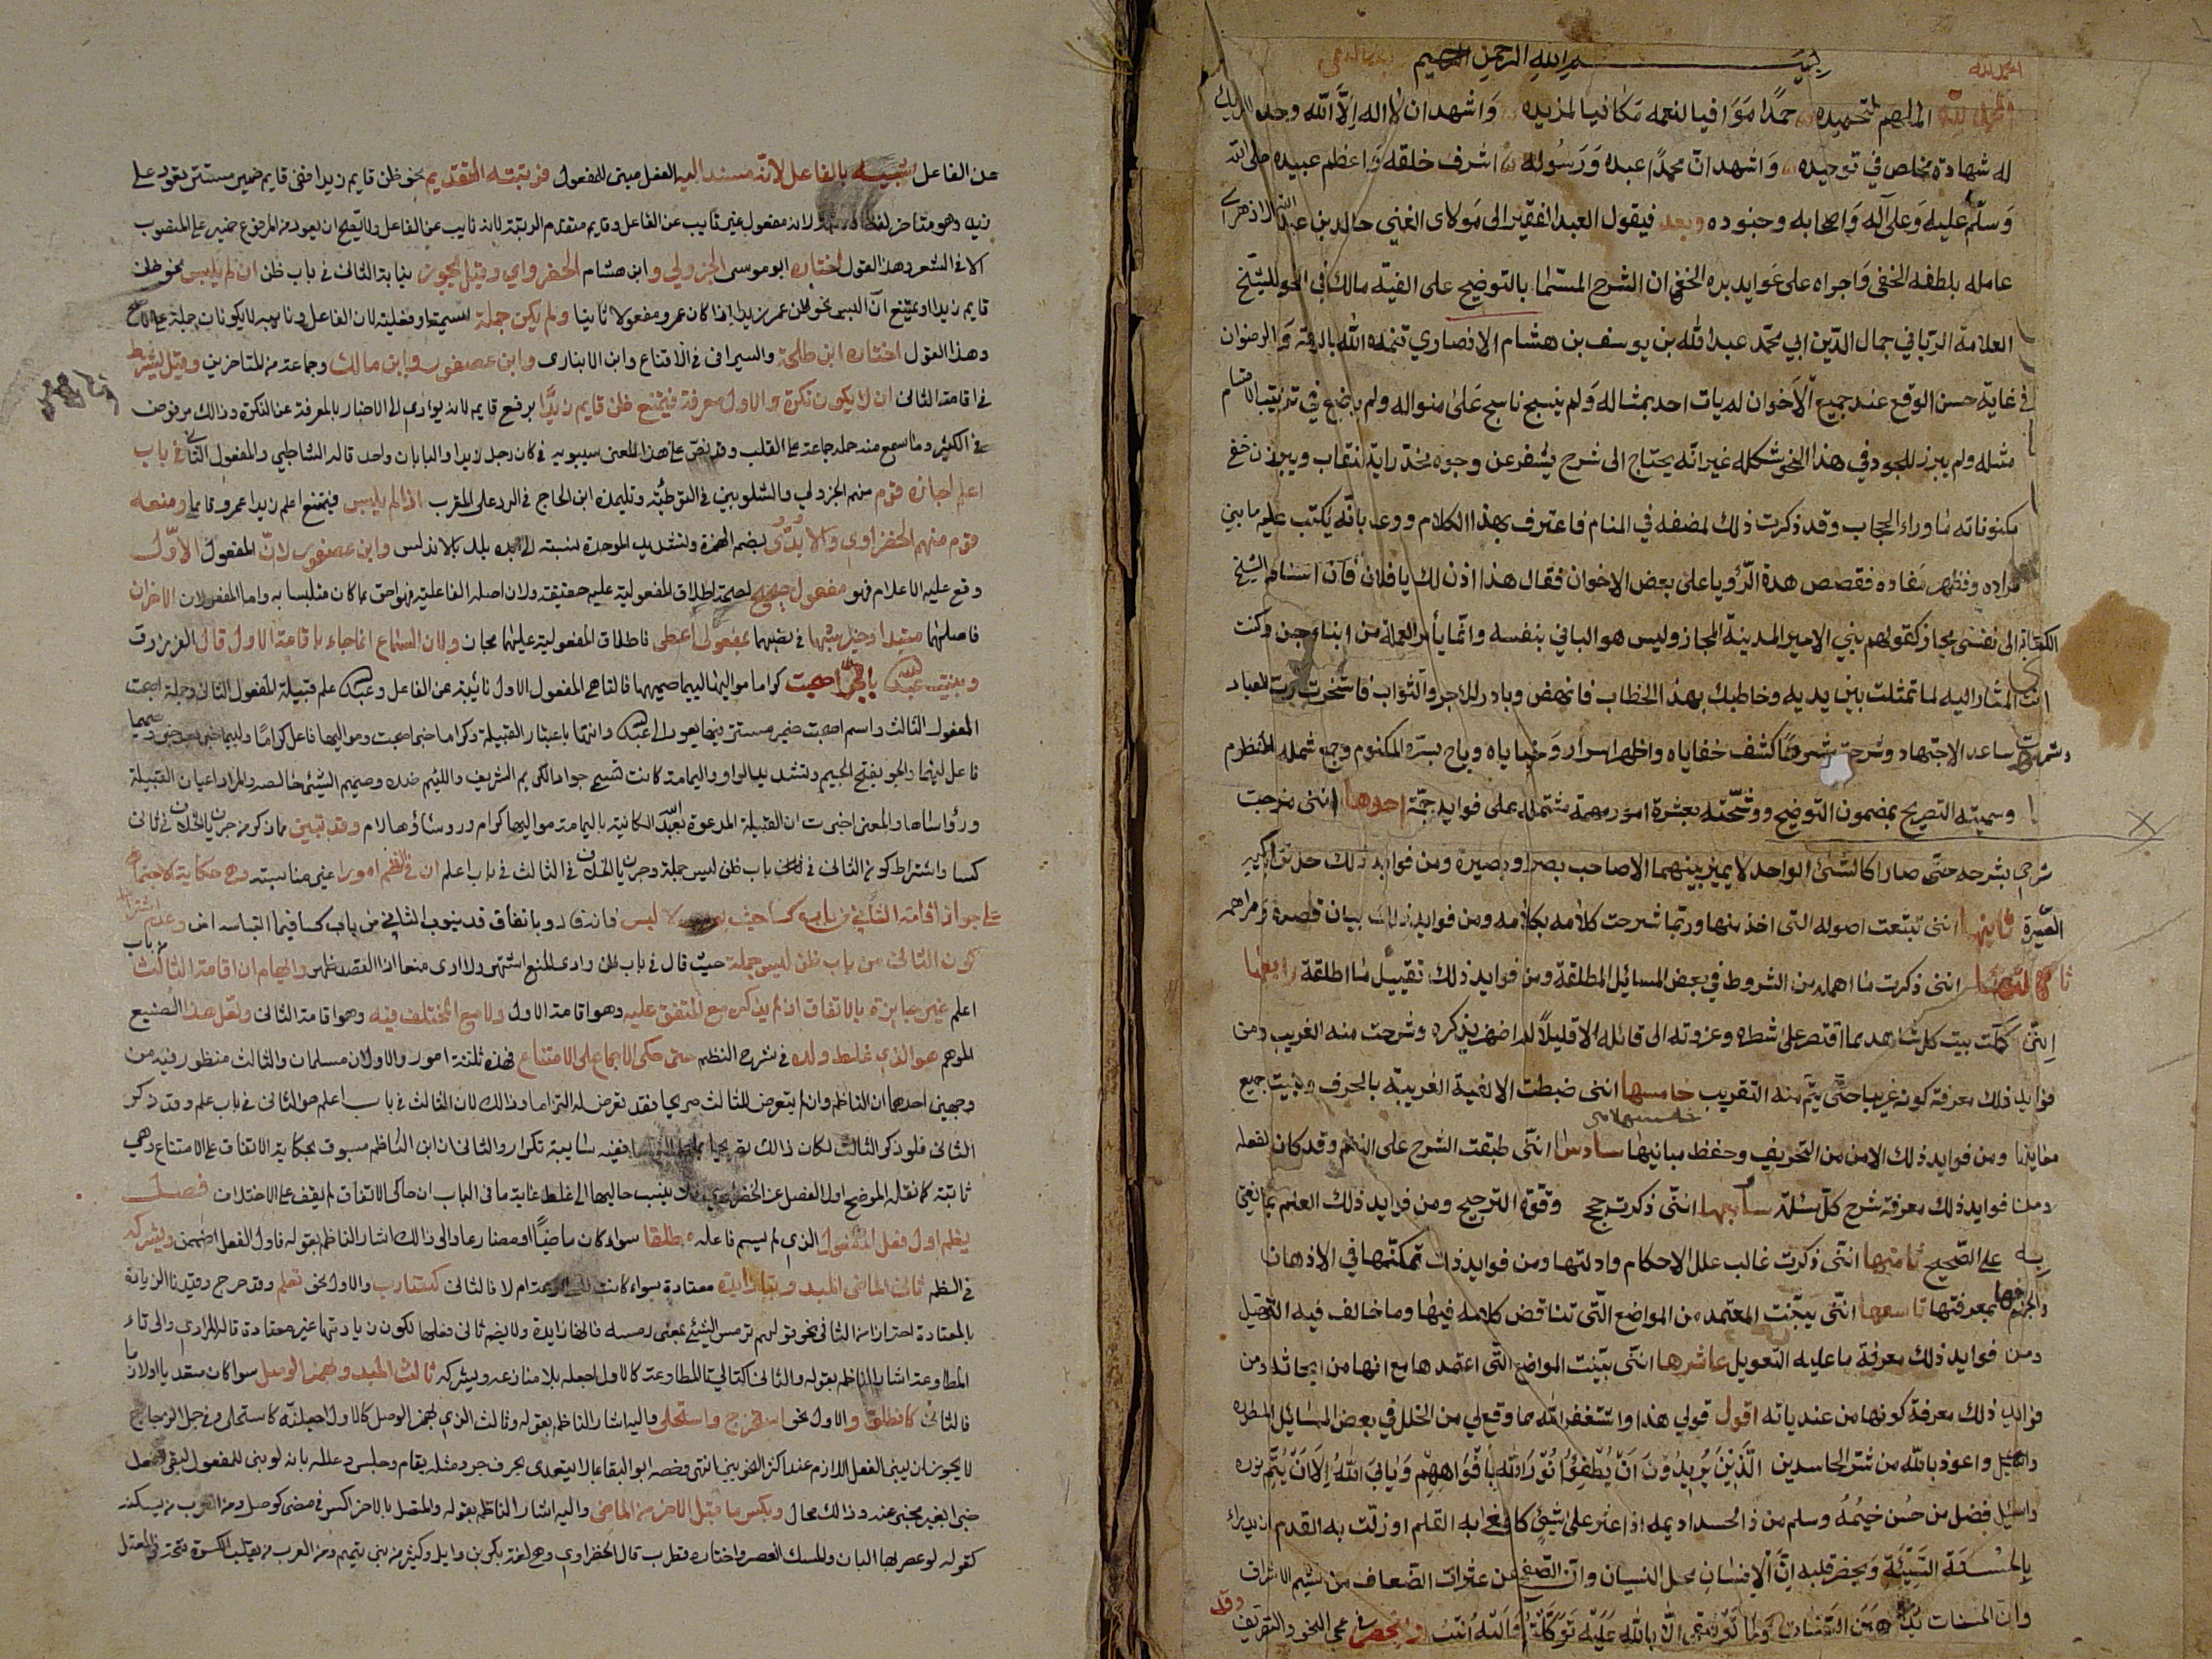 بسم الله الرحمن الرحيم
الحمد لله الملهم لتحميده حمدا موافيا لنعمه مكافيا لمزيده واشهد ان لا اله الا الله وحده لا شريك
له شهادة مخلص في توحيده واشهد ان محمدا عبده ورسوله اشرف خلقه واعظم عبيده صلى الله
وسلم عليه وعلى آله واصحابه وجنوده وبعد فيقول العبد الفقير الى مولاه الغني خالد بن عبد الله الازهري
عامله بلطفه الخفي واجراه على عوايد بره الحفي ان الشرح المسمى بالتوضيح على الفية مالك في النحو للشيخ
العلامة الرباني جمال الدين ابي محمد عبد الله بن يوسف بن هشام الانصاري تغمده الله بالرحمة والرضوان
في غاية حسن الوقع عند جميع الاخوان لم يات احد بمثاله ولم ينسج ناسج على منواله ولم يوضع في ترتيب الاقسام
مثله ولم يبرز للوجود في هذا النحو شكله غير انه يحتاج الى شرح يسفر عن وجوه مخدراته النقاب ويبرز من خفي
مكنوناته ما وراء الحجاب وقد ذكرت ذلك لمصنفه في المنام فاعترف بهذا الكلام ووعد بانه يكتب عليه ما يبين
مراده ويظهر مفاده فقصصت هذه الرؤيا على بعض الاخوان فقال هذا اذن لك يا فلان فان اسناد الشيخ
الكتابة الى نفسه مجاز كقولهم بني الامير المدينة المجاز وليس هو الباني بنفسه وانما يأمر العملة من ابناء جنـ وكنت
انت المشار اليه لما تمثلت بين يديه وخاطبك بهذا الخطاب فانهض وبادر للاجر والثواب فاستخرت رب العباد
وشمرت ساعد الاجتهاد وشرحته شرحا كشف خفاياه واظهر اسراره وخباياه وباح بسره المكتوم وجمع شمله المنظوم
وسميته التصريح بمضمون التوضيح ووشحته بعشرة امور مهمة مشتملة على فوايد جمة احدها انني مزجت
شرحي بشرحه حتى صارا كالشئ الواحد لا يميز بينهما الا صاحب بصر او بصيرة ومن فوايد ذلك حل تراكيبه
العسيرة ثانيها انني تتبعت اصوله التي اخذ منها وربما شرحت كلامه بكلامه ومن فوايد ذلك بيان قصده ومرامه
ثالثها انني ذكرت ما اهمله من الشروط في بعض المسائل المطلقة ومن فوايد ذلك تقييد ما اطلقه رابعها
انني كملت بيت كل شاهد مما اقتصر على شطره وعزوته الى قائله الا قليلا لم اضفر بذكره وشرحت منه الغريب ومن
فوايد ذلك معرفة كونه غريبا حتى يتم منه التقريب خامسها انني ضبطت الالفية الغريبة بالحرف وبينت جميع
معانيها ومن فوايد ذلك الامن من التحريف وحفظ مبانيها سادسها انني طبقت الشرح على النظم وقد كان اغفله
ومن فوايد ذلك معرفة شرح كل مسئلة سابعها انني ذكرت حجج وقوة الترجيح ومن فوايد ذلك العلم بما يفتي
به على الصحيح ثامنها انني ذكرت غالب علل الاحكام وادلتها ومن فوايد ذلك تمكنها في الاذهان
والجزم بمعرفتها تاسعها انني بينت المعتمد من المواضع التي تناقض كلامه فيها وما خالف فيه التسهيل
ومن فوايد ذلك معرفة ما عليه التعويل عاشرها انني بينت المواضع التي اعتمدها مع انها من ابحاثه ومن
فوايد ذلك معرفة كونها من عندياته اقول قولي هذا واستغفر الله مما وقع لي من الخلل في بعض المسائل المسطورة
واعوذ بالله من شر الحاسدين الذين يريدون ان يطفؤا نور الله بافواههم ويابى الله الا ان يتم نوره
واسئل فضل من حسن خيمه وسلم من ذا الحسد اديمه اذا عثر على شئ كافي به القلم او زلت به القدم ان يدراء
بالحسنة السيئة ويحضر قلبه ان الانسان محل النسيان وان الصفح عن عثرات الضعاف من شيم الاشراف
وان الحسنات يذهبن السيئات وما توفيقي الا بالله عليه توكلت واليه انيب
عن الفاعل شبيه بالفاعل لانه مسند اليه الفعل مبني للمفعول فرتبته التقديم نحو ظن قايم زيدا ففي قايم ضمير مستتر يعود على
زيد وهو متاخر لفظا ورتبة لانه مفعول غير نايب عن الفاعل وقايم متقدم الرتبة لانه نايب عن الفاعل ولا يصح ان يعود من المرفوع ضمير على المنصوب
الا في الشعر وهذا القول اختاره ابو موسى الجزولي وابن هشام الخضراوي وقيل يجوز نيابة الثاني في باب ظن ان لم يلبس نحو ظن
قايم زيدا ويمتنع ان البس نحو ظن عمر زيدا اذا كان عمرو مفعولا ثانيا ولم يكن جملة اسمية او فعلية لان الفاعل ونايبه لا يكونان جملة على الاصح
وهذا القول اختاره ابن طلحة والسيرافي في الاقناع وابن الانباري وابن عصفور وابن مالك وجماعة من المتاخرين وقيل يشترط
في اقامة الثاني ان لا يكون نكرة والاول معرفة فيمتنع ظن قايم زيدا برفع قايم لانه يؤدي الى الاخبار بالمعرفة عن النكرة وذالك مرفوض
في الكثير وما سمع منه حمله جماعة على القلب وقد نص على هذا المعنى سيبويه في كان رجل زيدا والبابان واحد قاله الشاطبي والمفعول الثاني في باب
اعلم اجازه قوم منهم الجزولي والشلوبين في التوطئة وتلميذه ابن الحاج في الرد على المقرب اذا لم يلبس فيمتنع اعلم زيدا عمرو قايما ومنعه
قوم منهم الخضراوي والابدي بضم الهمزة وتشديد الموحدة نسبته الى ابده بلد بالاندلس وابن عصفور لان المفعول الاول
وقع عليه الاعلام فهو مفعول صحيح لصحة اطلاق المفعولية عليه حقيقة ولان اصله الفاعلية فهو احق بما كان متلبسا به واما المفعولان الاخران
فاصلهما مبتدا وخبر شبها في نصبهما بمفعولي اعطى فاطلاق المفعولية عليهما مجاز ولان السماع انما جاء باقامة الاول قال الفرزدق
ونبئت عبد الله بالجو اصبحت كراما مواليها لئيما صميمها فالتاء هي المفعول الاول نائبة عن الفاعل وعبد الله علم قبيلة المفعول الثاني وجملة اصبحت
المفعول الثالث واسم اصبحت ضمير مستتر فيها يعود الى عبد الله وانثها باعتبار القبيلة وكراما خبر اصبحت ومواليها فاعل كراما ولئيما خبر بعد خبر وصميمها
فاعل لئيما والجو بفتح الجيم وتشديد الواو واليمامة كانت تسمى جوا والكريم الشريف واللئيم ضده وصميم الشيئ خالصه والمراد اعيان القبيلة
ورؤساها والمعنى اخبرت ان القبيلة المدعوة بعبد الله الكائنة باليمامة مواليها كرام ورؤساؤها لئام وقد تبين مما ذكر من جريان الخلاف في ثاني
كسا واشتراط كون الثاني في باب ظن ليس جملة وجريان الخلاف في الثالث في باب اعلم ان في النظم امورا غير مناسبة وهي حكاية الاجماع
على جواز اقامة الثاني من باب كسا حيث لا لبس فانه قال وباتفاق قد ينوب الثاني من باب كسا فيما التباسه امن وعدم اشتراط
كون الثاني من باب ظن ليس جملة حيث قال في باب ظن وارى المنع اشتهر ولا ارى منعا اذا القصد ظهر وايهام ان اقامة الثالث من باب
اعلم غير جايزة بالاتفاق اذ لم يذكره مع المتفق عليه وهو اقامة الاول ولا مع المختلف فيه وهو اقامة الثاني ولعل هذا الصنيع
الموهم هو الذي غلط ولده في شرح النظم حتى حكى الاجماع على الامتناع فهذه ثلثة امور والاولان مسلمان والثالث منظور فيه من
وجهين احدهما ان الناظم وان لم يتعرض للثالث صريحا فقد تعرض له التزاما وذالك لان الثالث في باب اعلم هو الثاني في باب علم وقد ذكر
الثاني فلو ذكر الثالث لكان ذالك تصريحا ففيه شايبة تكرار والثاني ان ابن الناظم مسبوق بحكاية الاتفاق على الامتناع وهي
ثابتة كما نقله الموضح اول الفصل عن الخضراوي ولا ينسب حاكيها الى غلط غاية ما في الباب ان حاكي الاتفاق لم يقف على الاختلاف فصل
يضم اول فعل المفعول الذي لم يسم فاعله مطلقا سواء كان ماضيا او مضارعا والى ذالك اشار الناظم بقوله فاول الفعل اضممن ويشركه
في الضم ثاني الماضي المبدو بتا زايدة معتادة سواء كانت للمطاوعة ام لا فالثاني كتضارب والاول نحو تعلم
بالمعتادة احترازا من التا في نحو قولهم ترمس الشيئ بمعنى رمسه فانها زايدة ولا يضم ثاني فعلها لكون زيادتها غير معتادة قاله المرادي والى تاء
المطاوعة اشار الناظم بقوله والثاني التالي تا المطاوعة كالاول اجعله بلا منازعة ويشركه ثالث المبدو بهمز الوصل سوا كان متعديا او لا
فالثاني كانطلق والاول نحو استخرج واستحلى واليه اشار الناظم بقوله وثالث الذي بهمز الوصل كالاول اجعلنه كاستحلي وفي جمل الزجاجي
لا يجوز ان يبنى الفعل اللازم عند اكثر النحويين انتهى وخصه ابو البقاء بما لا يتعدى بحرف جر ومثله بقام وجلس وعلله بانه لو بنى للمفعول لبقى الفعل
خبرا بغير مخبر عنه وذالك محال ويكسر ما قبل الاخر من الماضي واليه اشار الناظم بقوله والمتصل بالاخر اكسر في مضي كوصل ومن العرب من يسكنه
كقوله لو عصر بها البان والمسك انعصر واختاره قطرب قال الخضراوي وهي لغة بكر بن وايل وكثير من بني تميم ومن العرب من يقلب الكسرة فتحة في المعتل